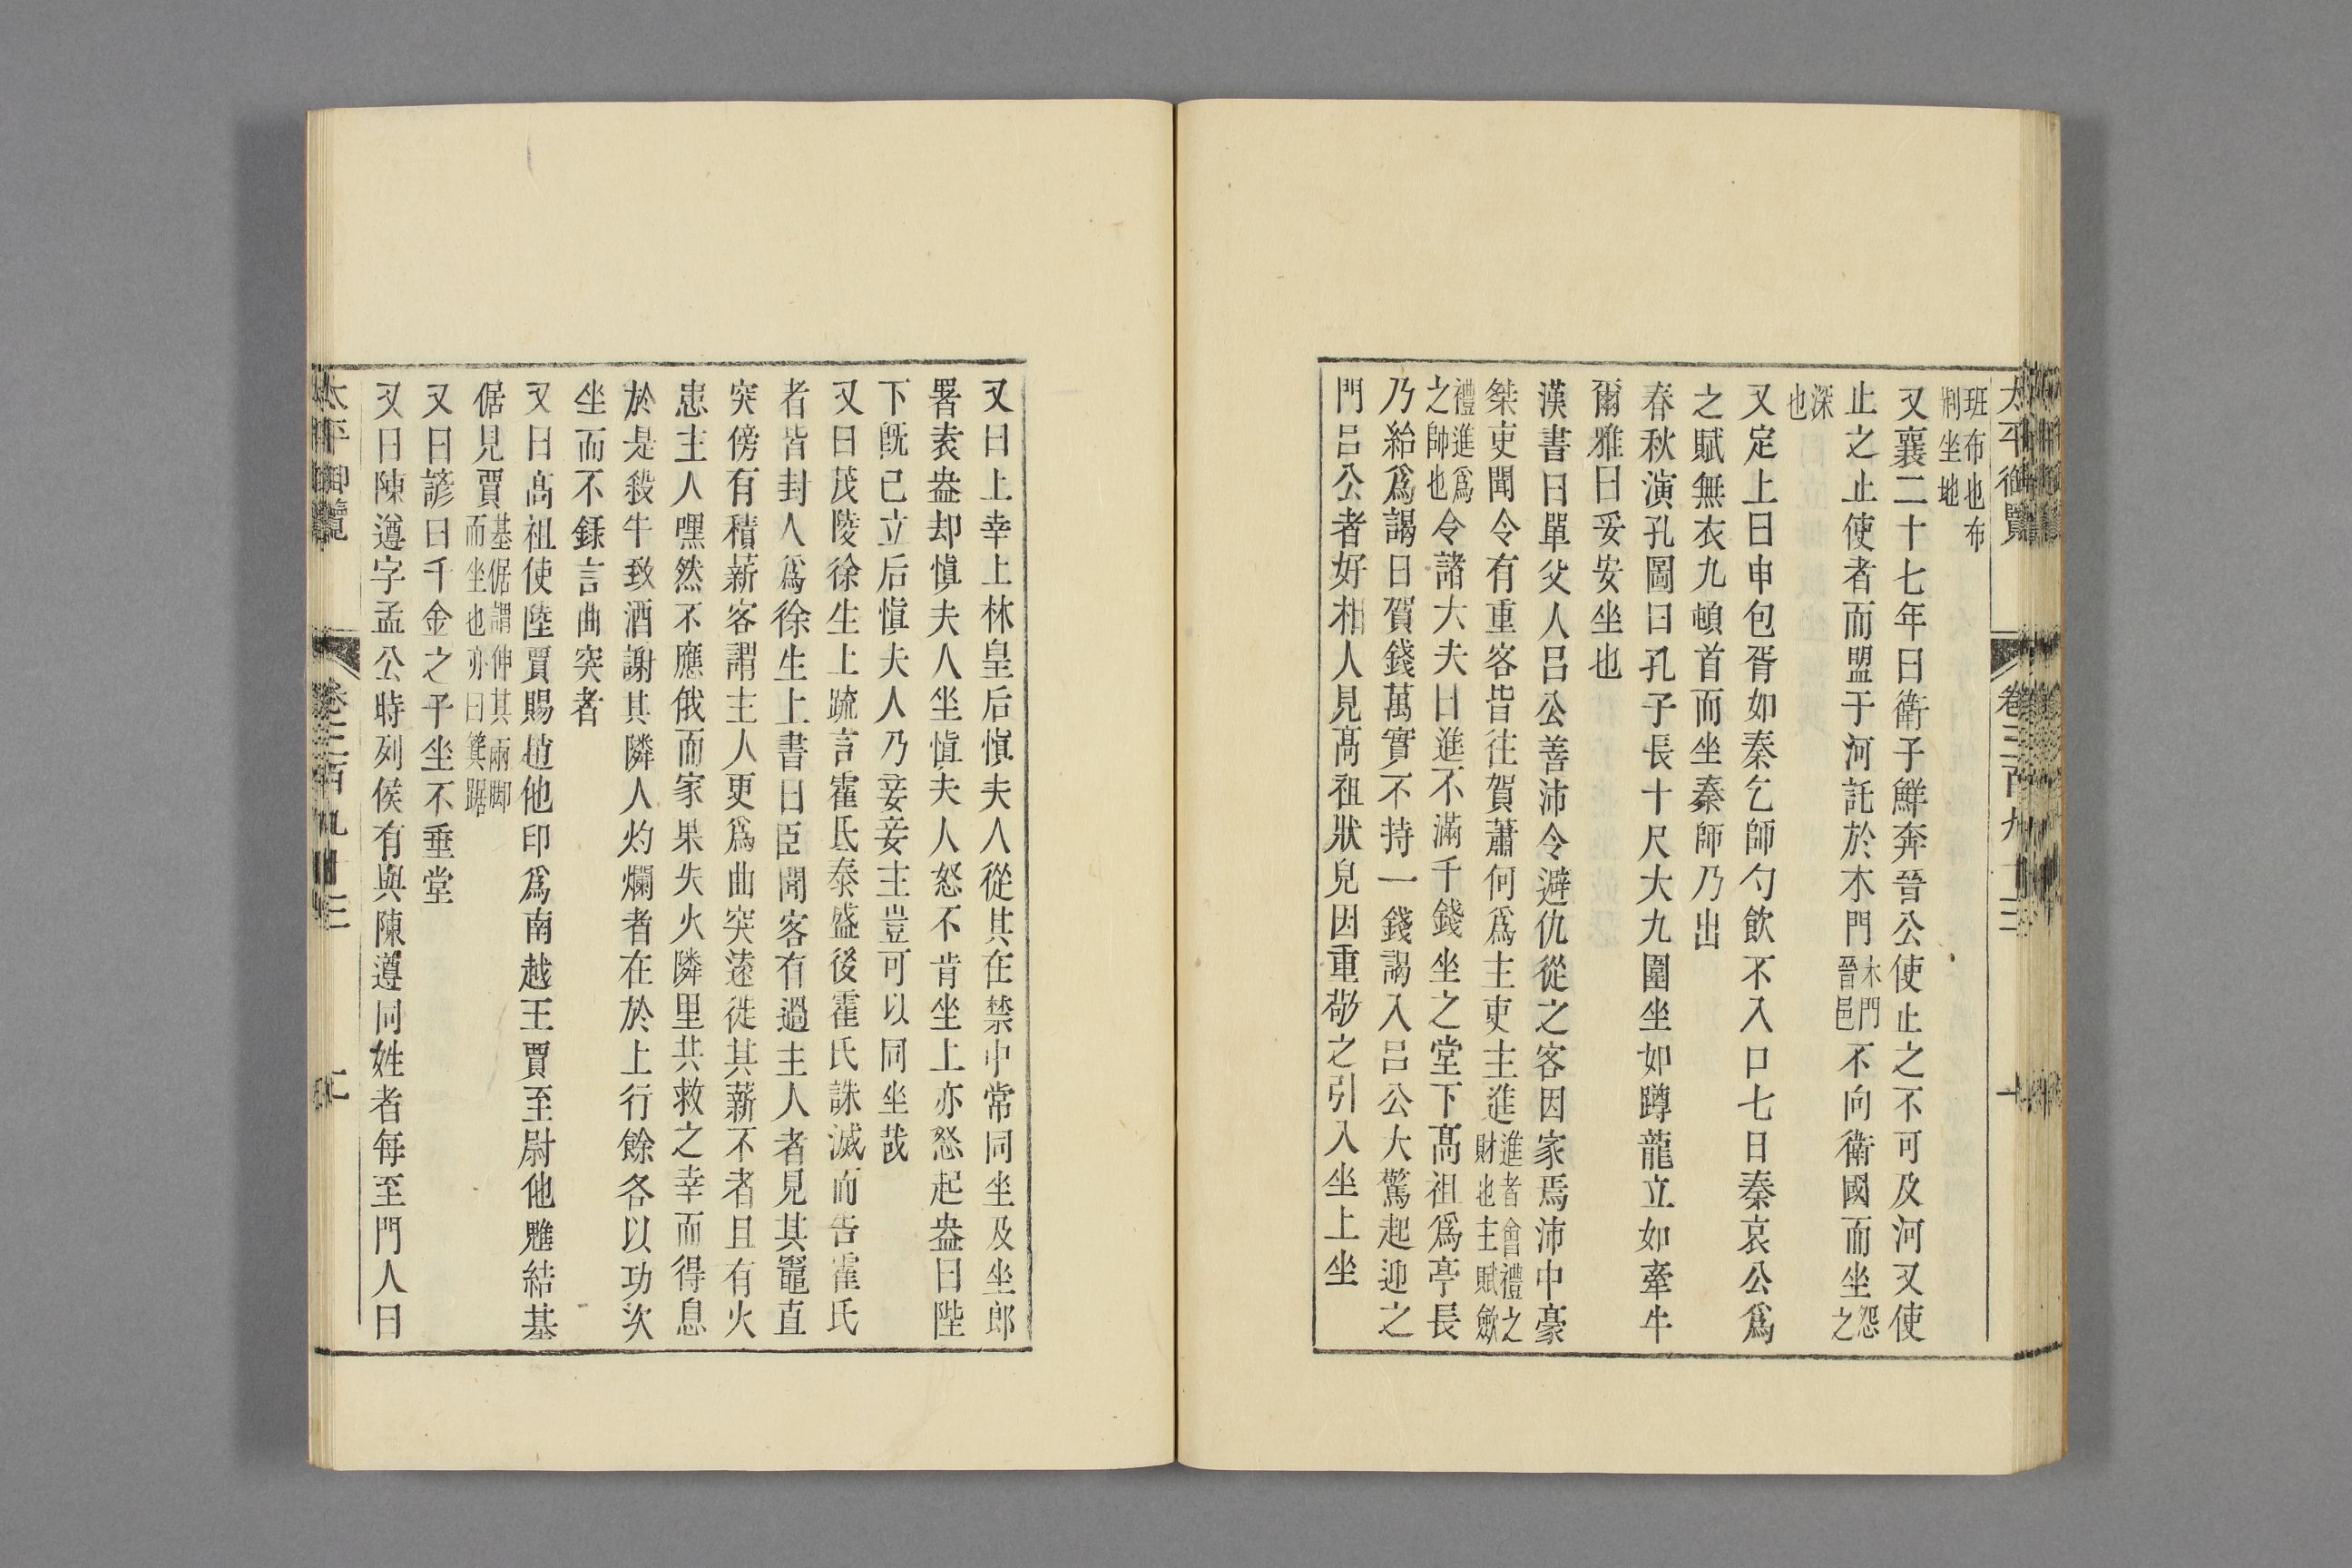 太平御覽 卷三百九十三 一
班布也布荆坐地
又襄二十七年曰衛子鮮奔晉公使止之不可及河又使
止之止使者而盟于河託於木門木門晉邑不向衛國而坐怨之
深也
又定上曰申包胥如秦乞師勺飲不入口七日秦哀公爲
之賦無衣九頓首而坐秦師乃出
春秋演孔圖曰孔子長十尺大九圍坐如蹲龍立如牽牛
爾雅曰妥安坐也
漢書曰單父人呂公善沛令避仇從之客因家焉沛中豪
桀吏聞令有重客皆往賀蕭何爲主吏主進進者會禮之財也主賦斂
禮進爲之帥也令諸大夫曰進不滿千錢坐之堂下高祖爲亭長
乃紿爲謁曰賀錢萬實不持一錢謁入呂公大驚起迎之
門呂公者好相人見高祖狀皃因重敬之引入坐上坐
又曰上幸上林皇后慎夫人從其在禁中常同坐及坐郎
署袁盎却慎夫人坐慎夫人怒不肯坐上亦怒起盎曰陛
下旣已立后慎夫人乃妾妾主豈可以同坐哉
又曰茂陵徐生上疏言霍氏泰盛後霍氏誅滅而告霍氏
者皆封人爲徐生上書曰臣聞客有過主人者見其竈直
突傍有積薪客謂主人更爲曲突遠徙其薪不者且有火
患主人嘿然不應俄而家果失火隣里共救之幸而得息
於是殺牛致酒謝其隣人灼爛者在於上行餘各以功次
坐而不錄言曲突者
又曰高祖使陸賈賜趙他印爲南越王賈至尉他魋結基
倨見賈基倨謂伸其兩脚而坐也亦曰箕踞
又曰諺曰千金之子坐不垂堂
又曰陳遵字孟公時列侯有與陳遵同姓者每至門人曰
太平御覽 卷三百九十三